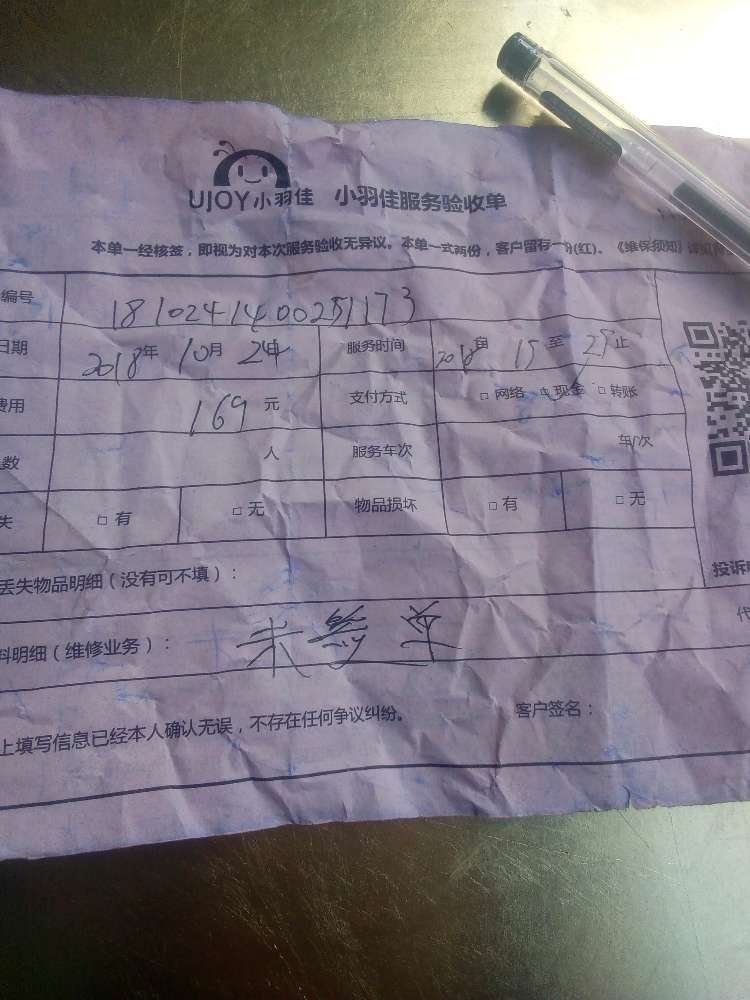 UJOY小羽佳 小羽佳服务验收单
本单一经核签，即视为对本次服务验收无异议。本单一式两份，客户留存一份(红)。《维保须知》
编号 1810241400251173
日期 2018年 10月 24日 服务时间 自 15 至 止
费用 169 元 支付方式 □网络 □现金 □转账
数 人 服务车次 车/次
失 □有 □无 物品损坏 □有 □无
丢失物品明细（没有可不填）：
投诉
料明细（维修业务）：
代
上填写信息已经本人确认无误，不存在任何争议纠纷。 客户签名：